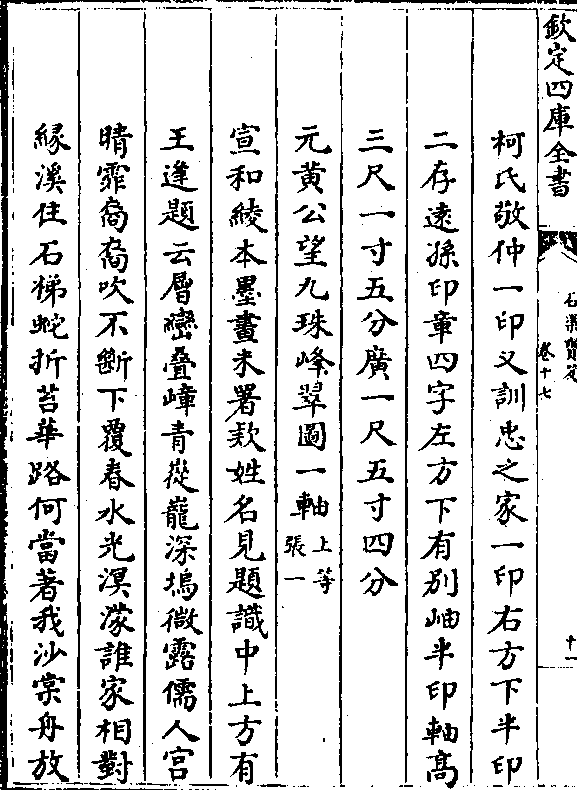 欽定四庫全書
石渠寶笈
卷十七
十一
柯氏敬仲一印又訓忠之家一印右方下半印
二存遠孫印章四字左方下有別岫半印軸高
三尺一寸五分廣一尺五寸四分
元黃公望九珠峰翠圖一軸上等張一
宣和綾本墨畫未署款姓名見題識中上方有
王逢題云層巒疊嶂青從巃深塢微露儒人宮
晴霏裔裔吹不斷下覆春水光溟濛誰家相對
緣溪住石梯蛇折苔華路何當著我沙棠舟放